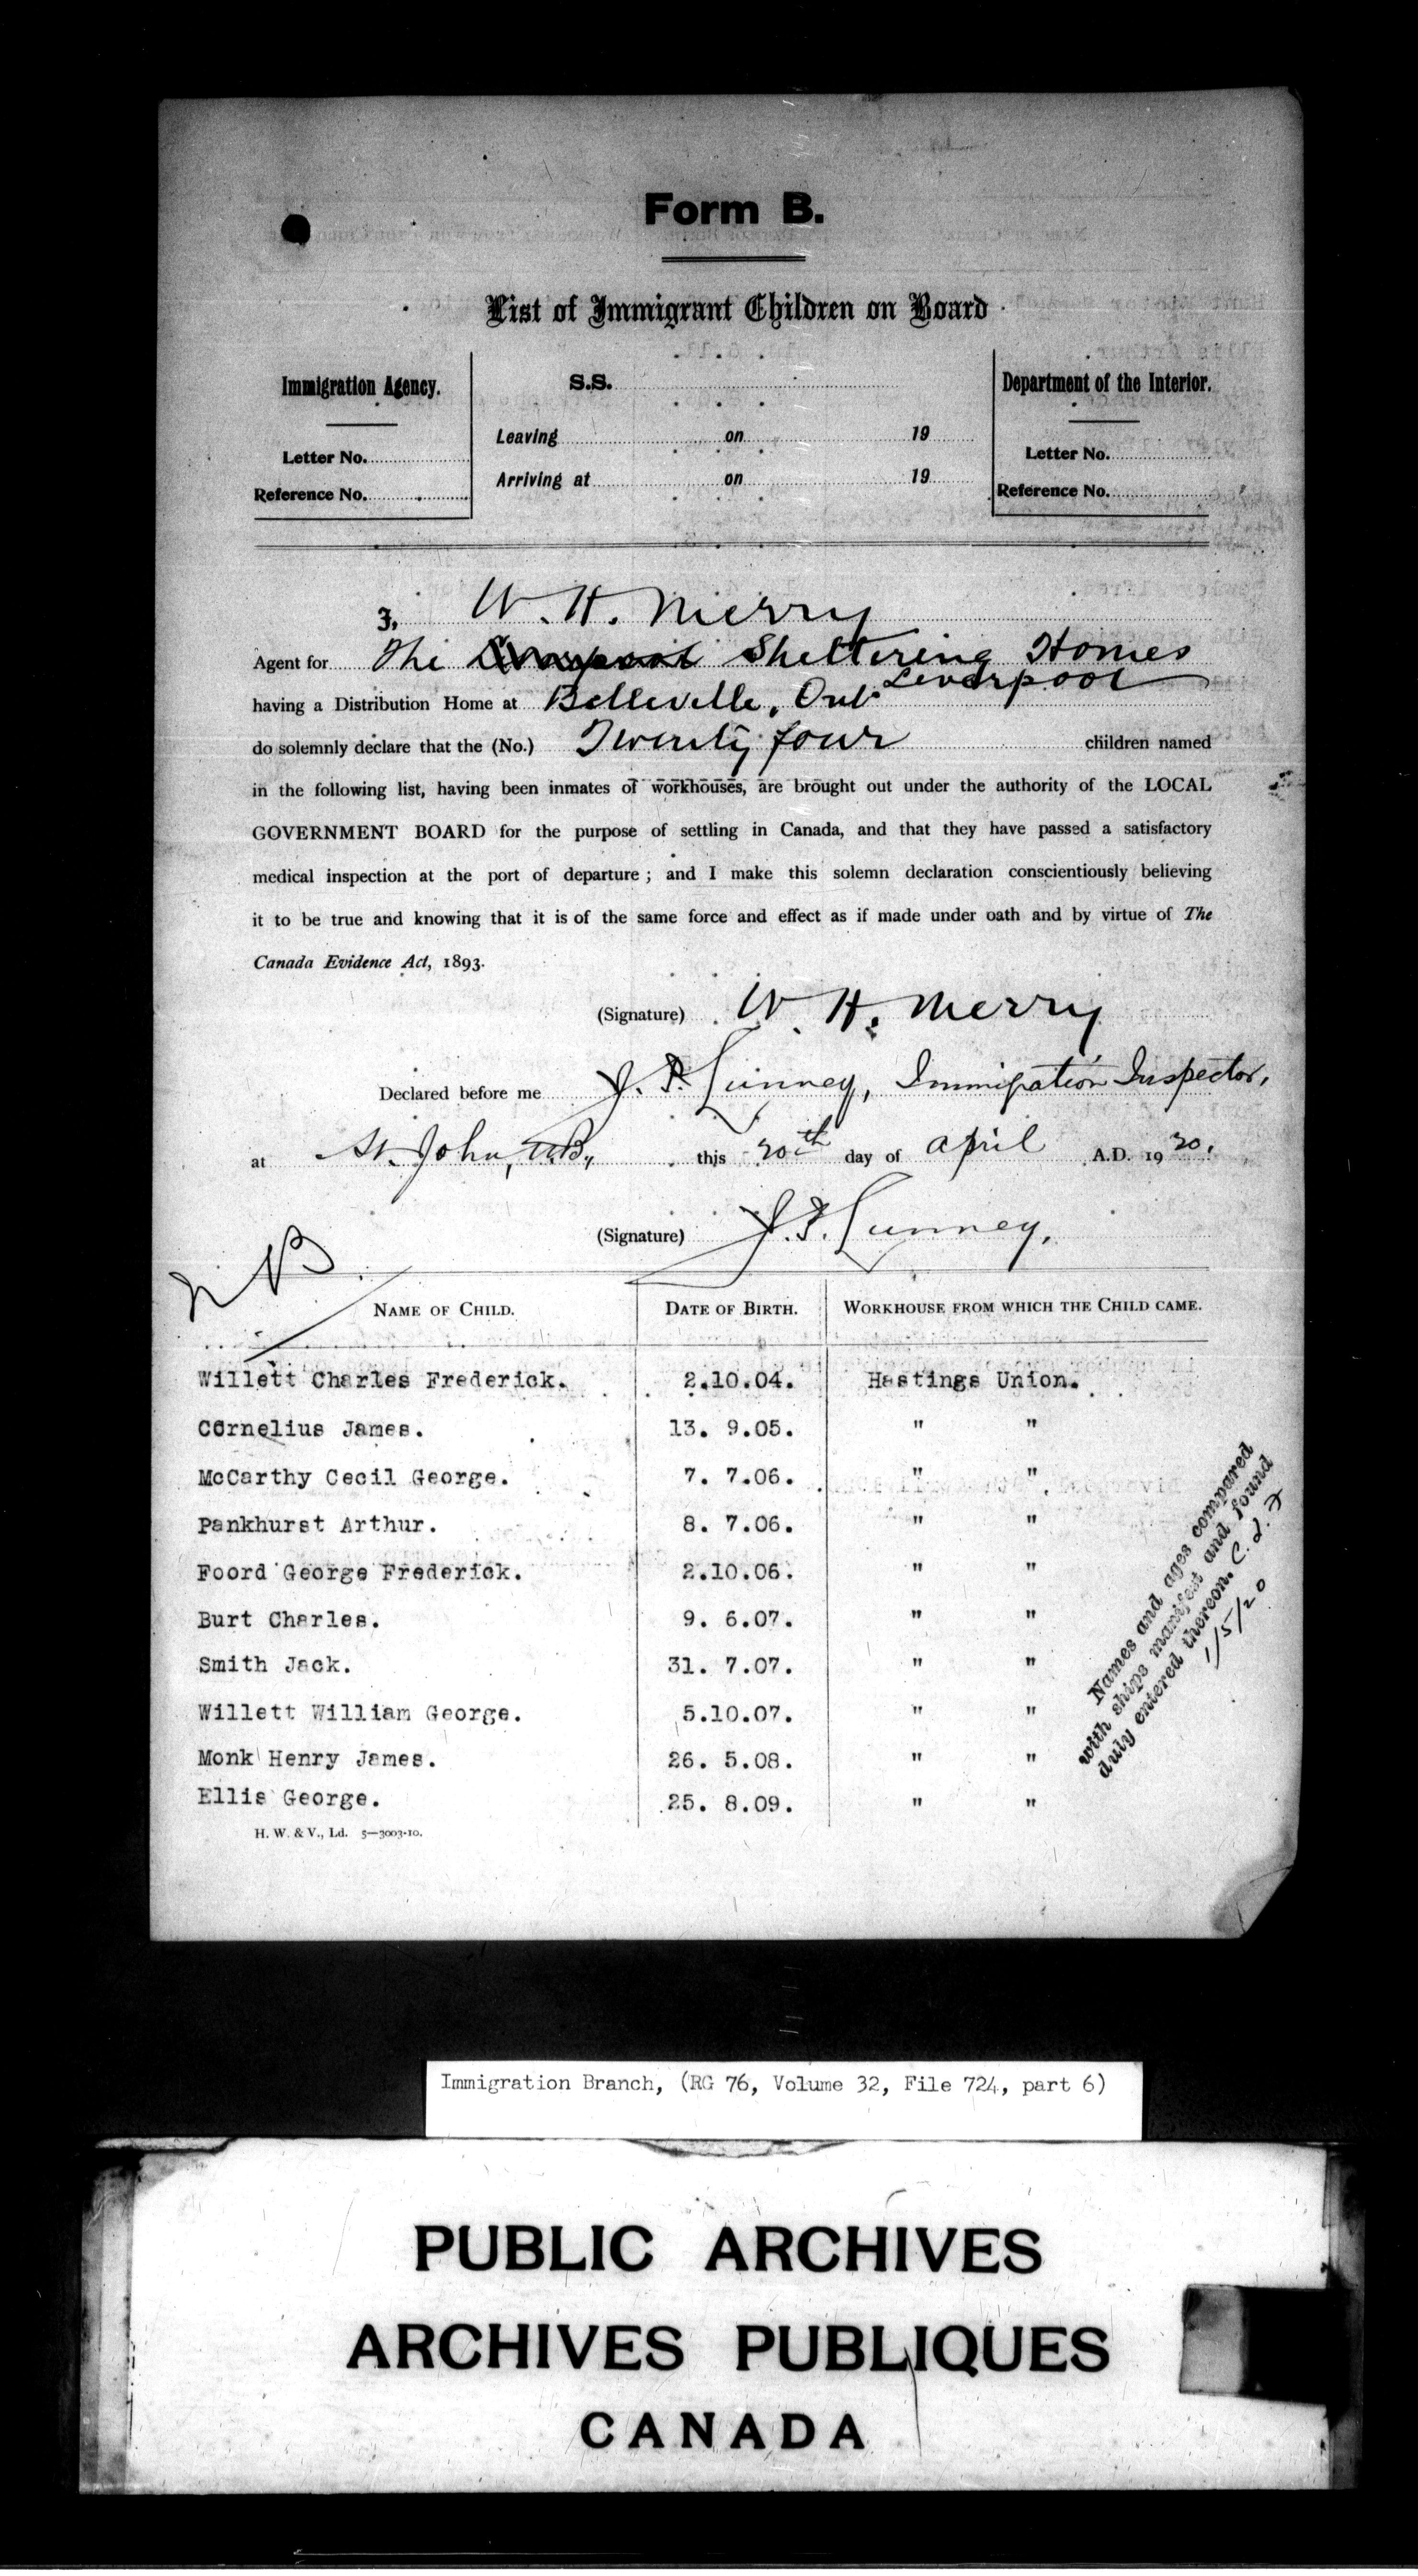 Form B.
List of Immigrant Children on Board
Immigration Agency.
Letter No.
Reference No.
S.S.
Leaving on 19
Arriving at on 19
Department of the Interior.
Letter No.
Reference No.
I, W. H. Merry
Agent for The Liverpool Sheltering Homes
Liverpool
having a Distribution Home at Belleville, Ont.
do solemnly declare that the (No.) Twenty four children named
in the following list, having been inmates of workhouses, are brought out under the authority of the LOCAL
GOVERNMENT BOARD for the purpose of settling in Canada, and that they have passed a satisfactory
medical inspection at the port of departure ; and I make this solemn declaration conscientiously believing
it to be true and knowing that it is of the same force and effect as if made under oath and by virtue of The
Canada Evidence Act, 1893.
(Signature) W. H. Merry
Declared before me J. F. Lunney, Immigration Inspector,
at St. John, N.B., this 20th day of April A.D. 1920.
(Signature) J. F. Lunney,
NAME OF CHILD. DATE OF BIRTH. WORKHOUSE FROM WHICH THE CHILD CAME.
Willett Charles Frederick. 2.10.04. Hastings Union.
Cornelius James. 13. 9.05. " "
McCarthy Cecil George. 7. 7.06. " "
Pankhurst Arthur. 8. 7.06. " "
Foord George Frederick. 2.10.06. " "
Burt Charles. 9. 6.07. " "
Smith Jack. 31. 7.07. " "
Willett William George. 5.10.07. " "
Monk Henry James. 26. 5.08. " "
Ellis George. 25. 8.09. " "
H. W. & V., Ld. 5—3003-10.
Names and ages compared
with ships manifest and found
duly entered thereon. C. d. F
1/5/20
Immigration Branch, (RG 76, Volume 32, File 724, part 6)
PUBLIC ARCHIVES
ARCHIVES PUBLIQUES
CANADA